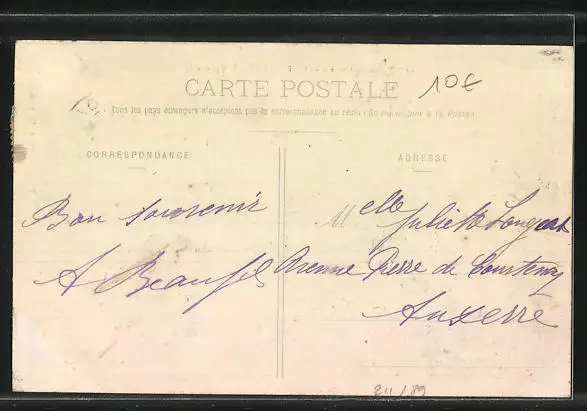 CARTE POSTALE
10€
Tous les pays étrangers n'acceptent pas la correspondance au recto (Se renseigner à la Poste)
CORRESPONDANCE
ADRESSE
Bon souvenir
A Beaufils
Melle
Juliette Longeat
Avenue Pierre de Courtenay
Auxerre